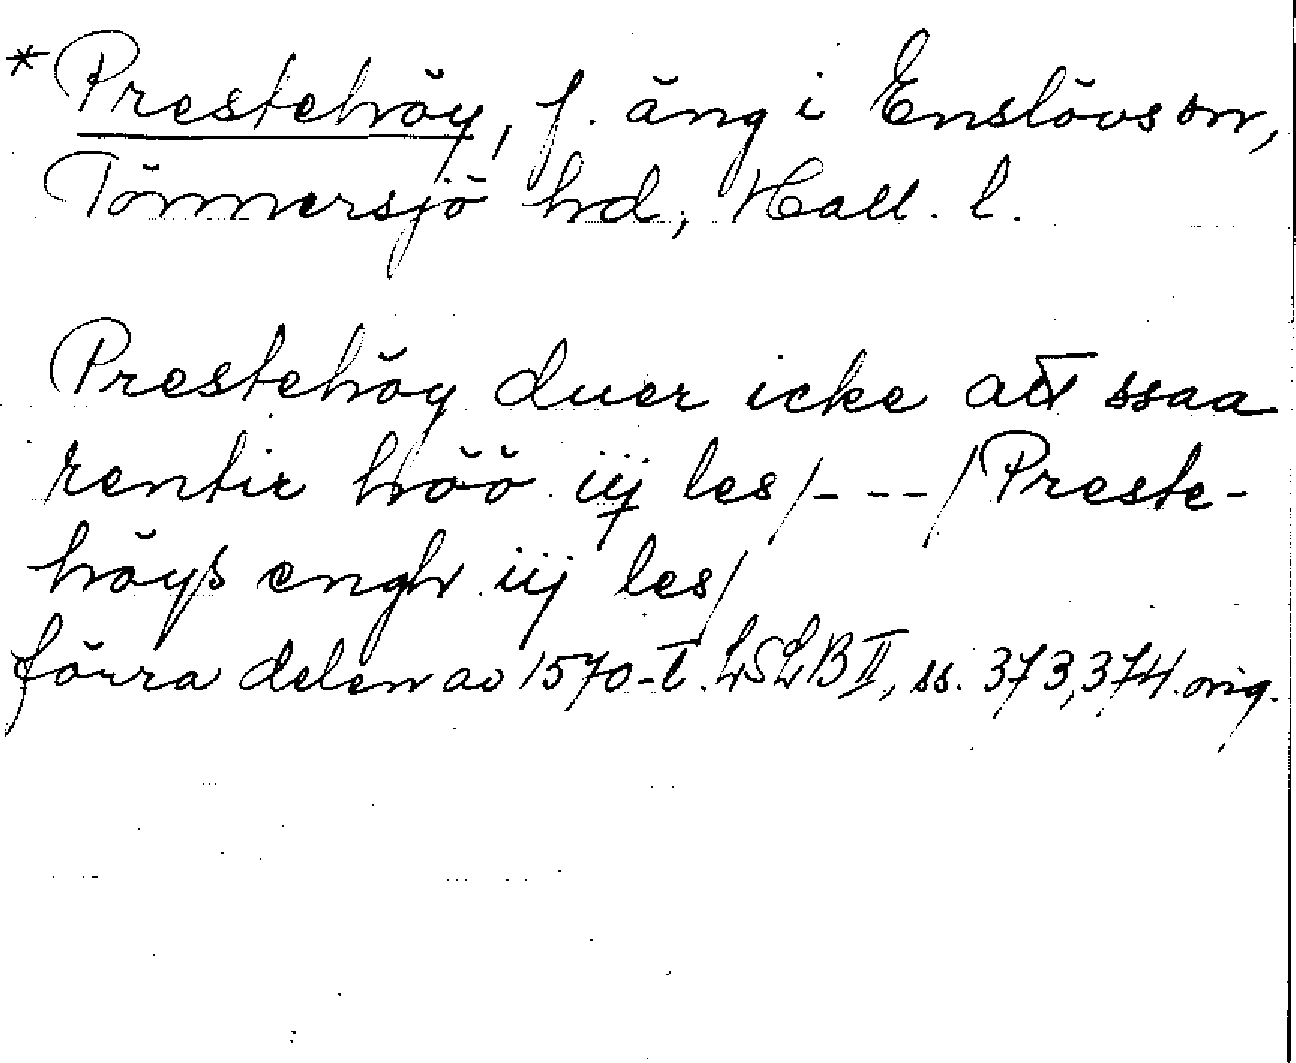 *Prestehöy, f. äng i Enslövs sn,
Tönnersjö hd, Hall. l.
Prestehöy duer icke att ssaa
rentir höö iij les /---/ Preste-
höys engh iij les/
förra delen av 1570-t. LSLB II, ss. 373, 374. orig.